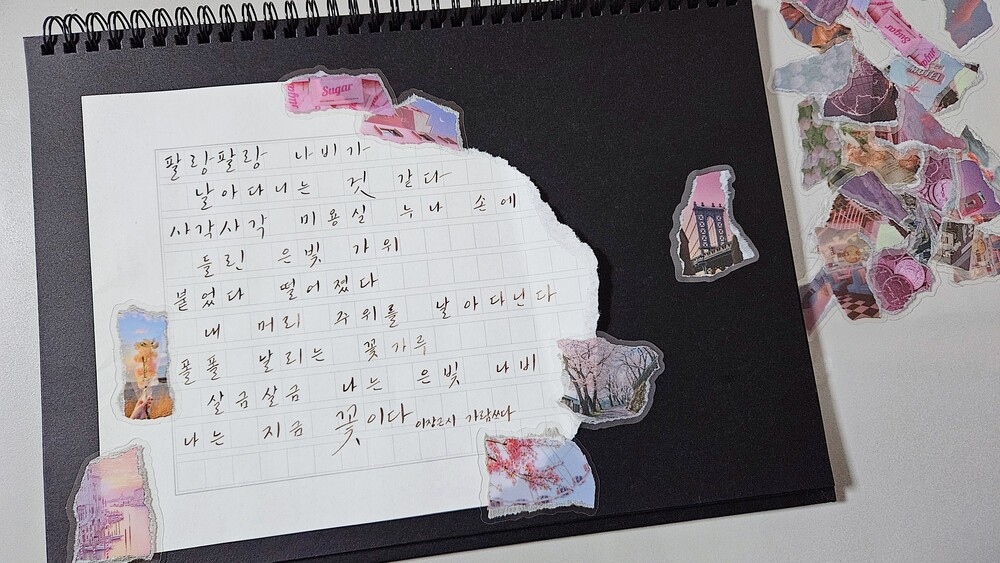 Sugar
팔랑팔랑 나비가
날아다니는 것 같다
사각사각 미용실 누나 손에
들린 은빛 가위
붙었다 떨어졌다
내 머리 주위를 날아다닌다
폴폴 날리는 꽃가루
살금살금 나는 은빛 나비
나는 지금 꽃이다 이장근시 가람쓰다
Sugar
Sugar
MOTEL